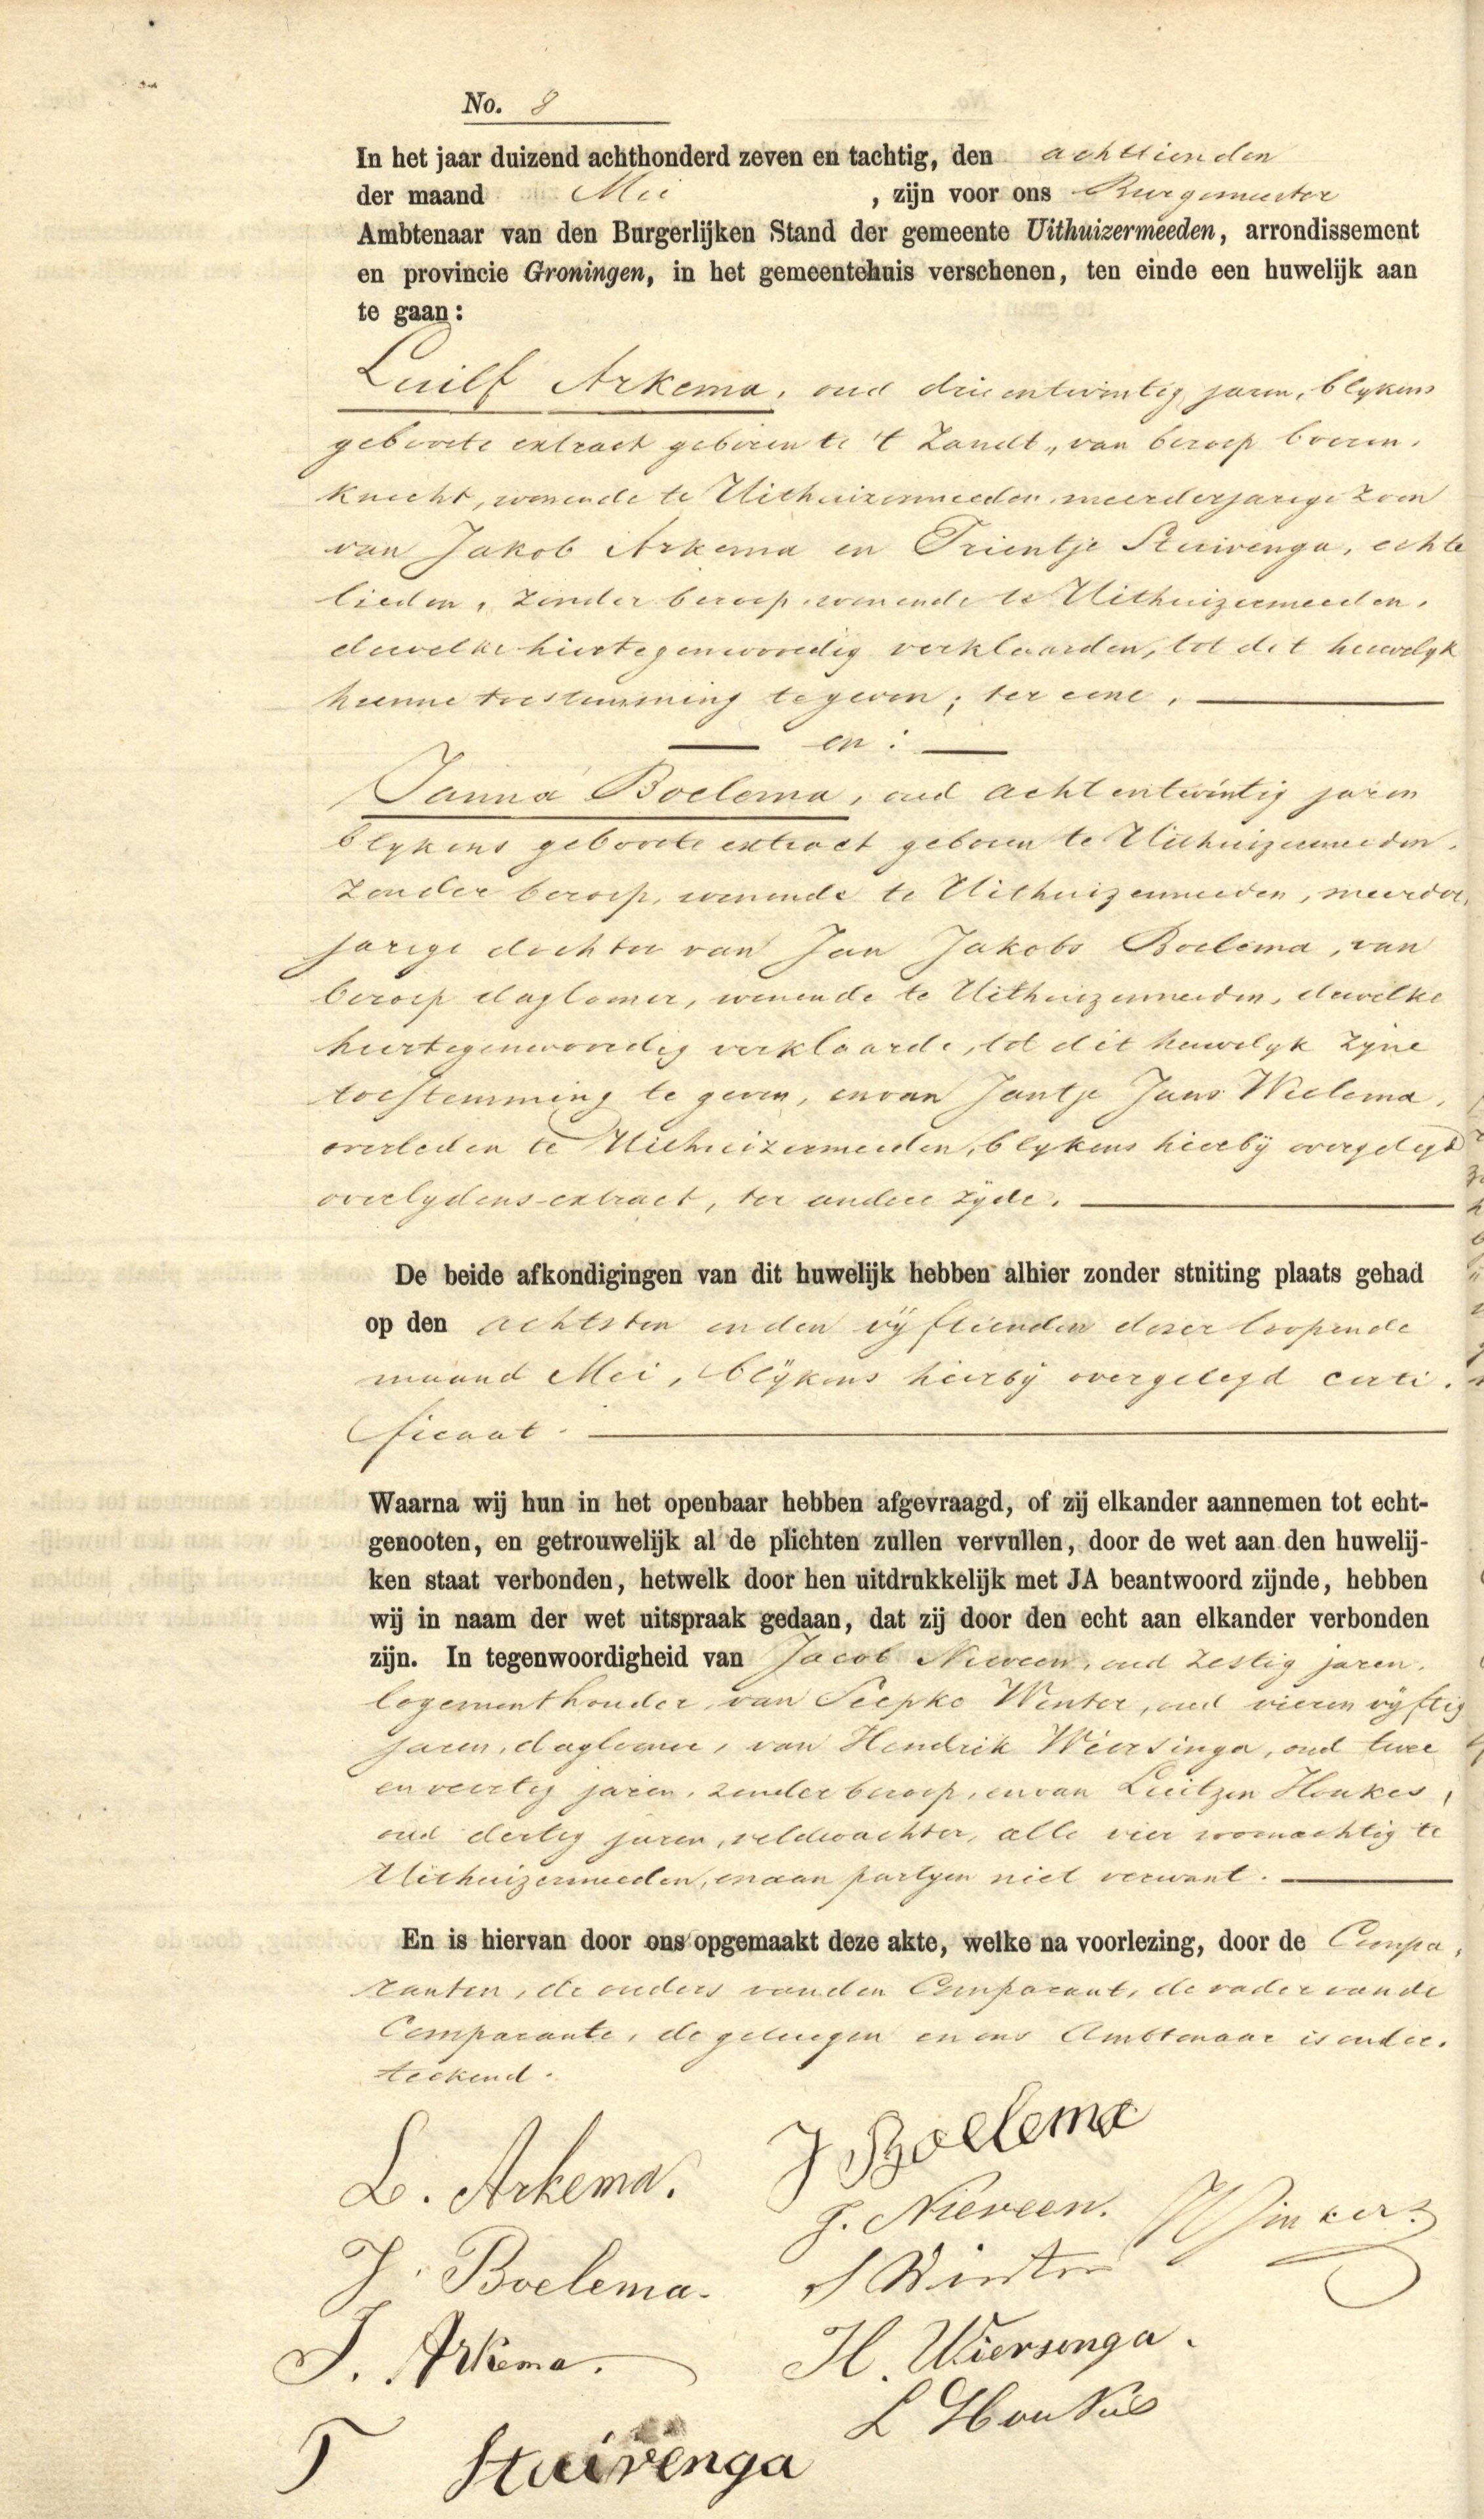 No. 8
In het jaar duizend achthonderd zeven en tachtig, den achttienden
der maand Mei , zijn voor ons Burgemeester
Ambtenaar van den Burgerlijken Stand der gemeente Uithuizermeeden, arrondissement
en provincie Groningen, in het gemeentehuis verschenen, ten einde een huwelijk aan
te gaan:
Luilf Arkema, oud drieentwintig jaren, blykens
geboorte extract geboren te 't Zandt, van beroep boeren,
knecht, wonende te Uithuizermeeden, meerderjarige zoon
van Jakob Arkema en Trientje Stuivenga, echte
lieden, zonder beroep, wonende te Uithuizermeeden,
dewelke hiertegenwoordig verklaarden, tot dit huwelyk
hunne toestemming te geven; ter eene,
en:
Janna Boelema, oud achtentwintig jaren
blykens geboorte extract geboren te Uithuizermeeden,
zonder beroep, wonende te Uithuizermeeden, meerder,
jarige dochter van Jan Jakobs Boelema, van
beroep dagloner, wonende te Uithuizermeeden, dewelke
hiertegenwoordig verklaarde, tot dit huwelyk zyne
toestemming te geven, en van Jantje Jans Wielema,
overleden te Uithuizermeeden, blykens hierbij overgelegd
overlydens-extract, ter andere zyde.
De beide afkondigingen van dit huwelijk hebben alhier zonder stuiting plaats gehad
op den achtsten en den vijftienden dezer loopende
maand Mei, blijkens hierbij overgelegd certi,
ficaat.
Waarna wij hun in het openbaar hebben afgevraagd, of zij elkander aannemen tot echt-
genooten, en getrouwelijk al de plichten zullen vervullen, door de wet aan den huwelij-
ken staat verbonden, hetwelk door hen uitdrukkelijk met JA beantwoord zijnde, hebben
wij in naam der wet uitspraak gedaan, dat zij door den echt aan elkander verbonden
zijn. In tegenwoordigheid van Jacob Nieveen, oud zestig jaren,
logementhouder, van Seepko Winter, oud vieren vyftig
jaren, dagloner, van Hendrik Wiersinga, oud twee
en veertig jaren, zonder beroep, en van Luitzen Houkes,
oud dertig jaren, veldwachter, alle vier woonachtig te
Uithuizermeeden, en aan partyen niet verwant.
En is hiervan door ons opgemaakt deze akte, welke na voorlezing, door de Compa,
ranten, de ouders van den Comparant, de vader van de
Comparante, de getuigen en ons Ambtenaar is onder,
teekend.
L. Arkema. J Boelema
J. Nieveen.
J. Boelema. S Winter
J. Arkema. H. Wiersenga.
L Houkes
T Stuivenga